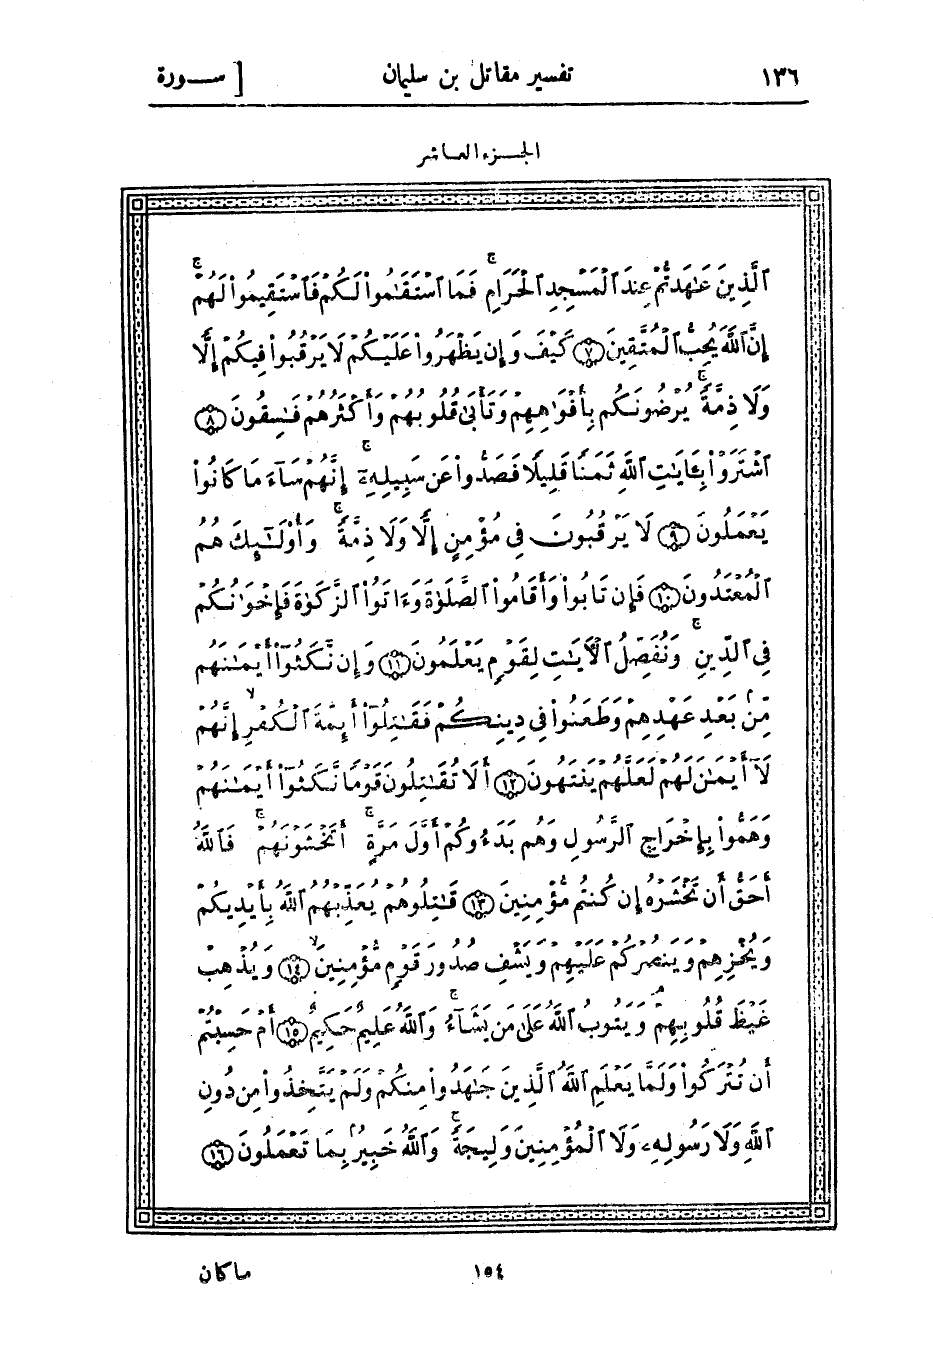 ١٣٦ تفسير مقاتل بن سليمان [ ســورة
الجـزء العـاشر
ٱلَّذِينَ عَٰهَدتُّمْ عِندَ ٱلْمَسْجِدِ ٱلْحَرَامِ ۚ فَمَا ٱسْتَقَٰمُوا۟ لَكُمْ فَٱسْتَقِيمُوا۟ لَهُمْ ۚ
إِنَّ ٱللَّهَ يُحِبُّ ٱلْمُتَّقِينَ ٧ كَيْفَ وَإِن يَظْهَرُوا۟ عَلَيْكُمْ لَا يَرْقُبُوا۟ فِيكُمْ إِلًّا
وَلَا ذِمَّةً ۚ يُرْضُونَكُم بِأَفْوَٰهِهِمْ وَتَأْبَىٰ قُلُوبُهُمْ وَأَكْثَرُهُمْ فَٰسِقُونَ ٨
ٱشْتَرَوْا۟ بِـَٔايَٰتِ ٱللَّهِ ثَمَنًا قَلِيلًا فَصَدُّوا۟ عَن سَبِيلِهِۦٓ ۚ إِنَّهُمْ سَآءَ مَا كَانُوا۟
يَعْمَلُونَ ٩ لَا يَرْقُبُونَ فِى مُؤْمِنٍ إِلًّا وَلَا ذِمَّةً ۚ وَأُو۟لَٰٓئِكَ هُمُ
ٱلْمُعْتَدُونَ ١٠ فَإِن تَابُوا۟ وَأَقَامُوا۟ ٱلصَّلَوٰةَ وَءَاتَوُا۟ ٱلزَّكَوٰةَ فَإِخْوَٰنُكُمْ
فِى ٱلدِّينِ ۗ وَنُفَصِّلُ ٱلْـَٔايَٰتِ لِقَوْمٍ يَعْلَمُونَ ١١ وَإِن نَّكَثُوٓا۟ أَيْمَٰنَهُم
مِّنۢ بَعْدِ عَهْدِهِمْ وَطَعَنُوا۟ فِى دِينِكُمْ فَقَٰتِلُوٓا۟ أَئِمَّةَ ٱلْكُفْرِ ۙ إِنَّهُمْ
لَآ أَيْمَٰنَ لَهُمْ لَعَلَّهُمْ يَنتَهُونَ ١٢ أَلَا تُقَٰتِلُونَ قَوْمًا نَّكَثُوٓا۟ أَيْمَٰنَهُمْ
وَهَمُّوا۟ بِإِخْرَاجِ ٱلرَّسُولِ وَهُم بَدَءُوكُمْ أَوَّلَ مَرَّةٍ ۚ أَتَخْشَوْنَهُمْ ۚ فَٱللَّهُ
أَحَقُّ أَن تَخْشَوْهُ إِن كُنتُم مُّؤْمِنِينَ ١٣ قَٰتِلُوهُمْ يُعَذِّبْهُمُ ٱللَّهُ بِأَيْدِيكُمْ
وَيُخْزِهِمْ وَيَنصُرْكُمْ عَلَيْهِمْ وَيَشْفِ صُدُورَ قَوْمٍ مُّؤْمِنِينَ ١٤ وَيُذْهِبْ
غَيْظَ قُلُوبِهِمْ ۗ وَيَتُوبُ ٱللَّهُ عَلَىٰ مَن يَشَآءُ ۗ وَٱللَّهُ عَلِيمٌ حَكِيمٌ ١٥ أَمْ حَسِبْتُمْ
أَن تُتْرَكُوا۟ وَلَمَّا يَعْلَمِ ٱللَّهُ ٱلَّذِينَ جَٰهَدُوا۟ مِنكُمْ وَلَمْ يَتَّخِذُوا۟ مِن دُونِ
ٱللَّهِ وَلَا رَسُولِهِۦ وَلَا ٱلْمُؤْمِنِينَ وَلِيجَةً ۚ وَٱللَّهُ خَبِيرٌۢ بِمَا تَعْمَلُونَ ١٦
١٥٤ ماكان